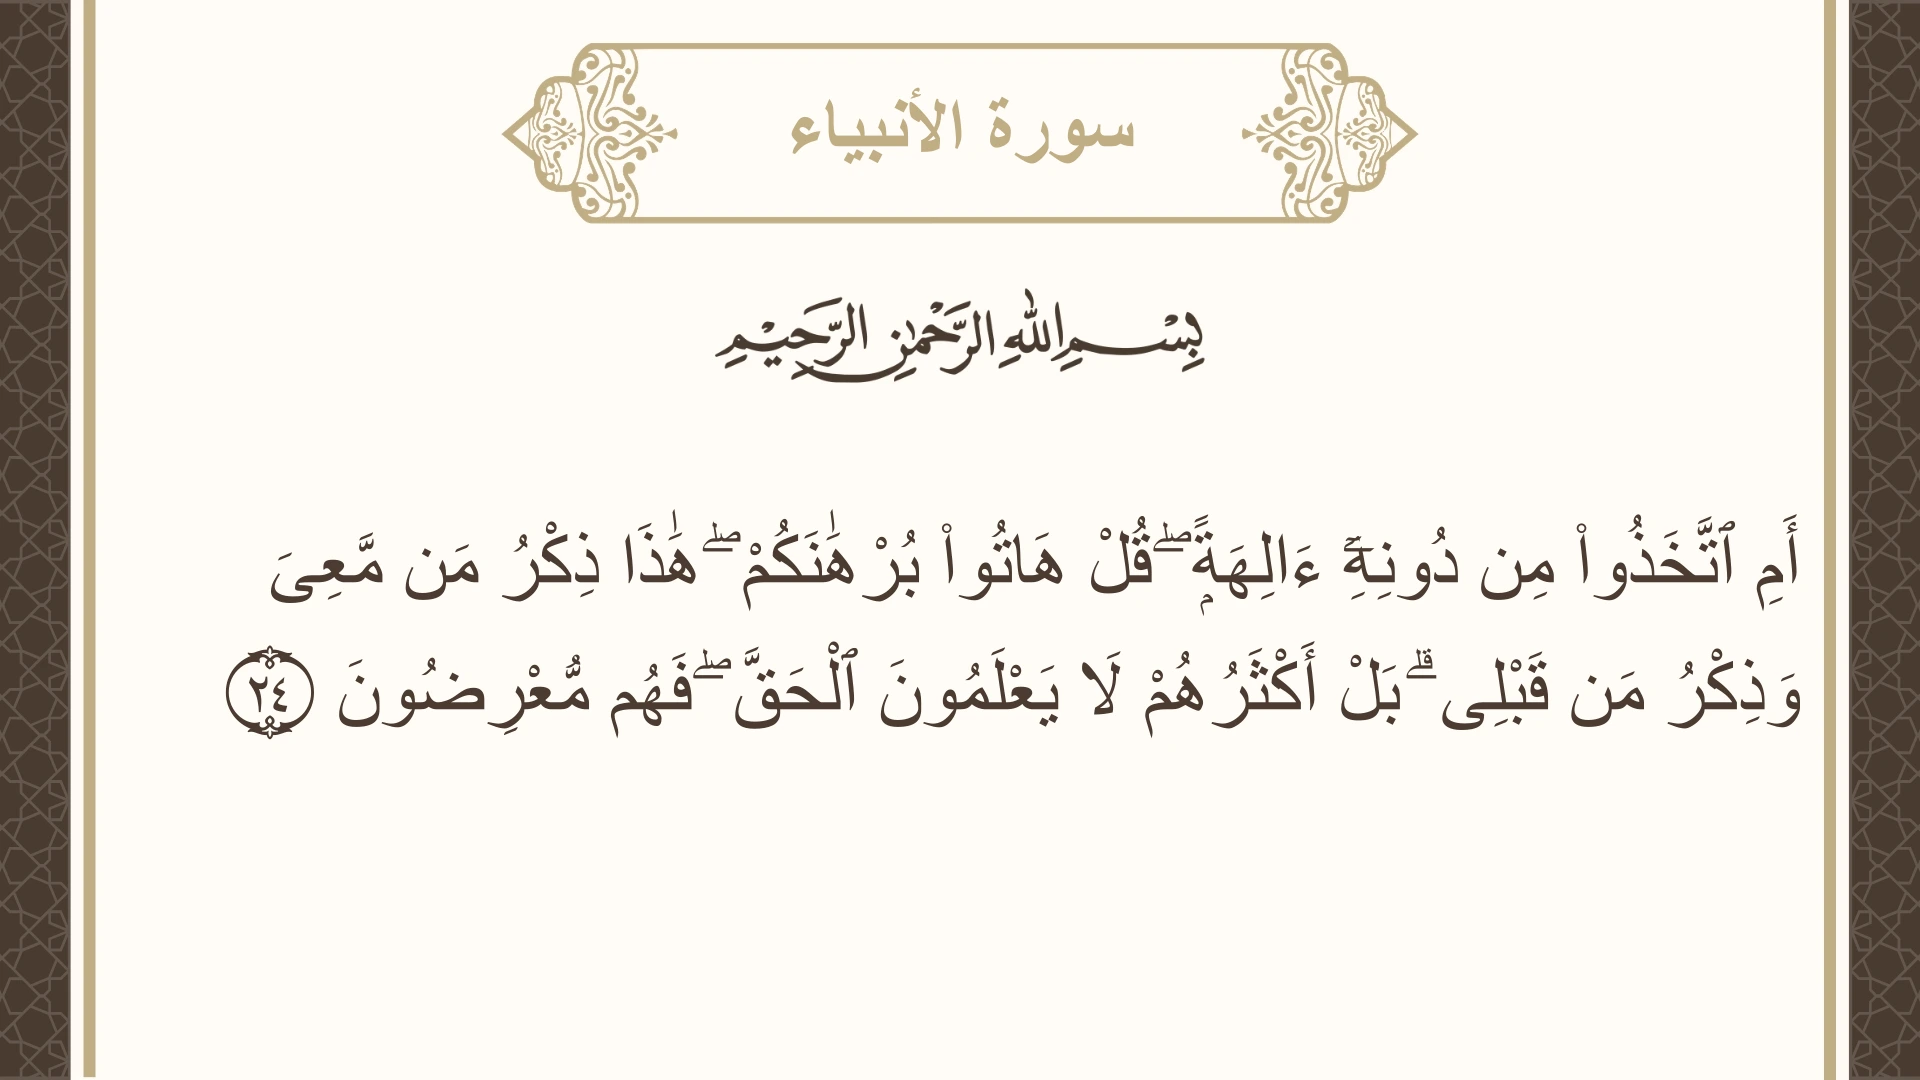 سورة الأنبياء
بِسْمِ اللهِ الرَّحْمٰنِ الرَّحِيْمِ
أَمِ ٱتَّخَذُوا۟ مِن دُونِهِۦٓ ءَالِهَةًۭ ۖ قُلْ هَاتُوا۟ بُرْهَٰنَكُمْ ۖ هَٰذَا ذِكْرُ مَن مَّعِىَ
وَذِكْرُ مَن قَبْلِى ۗ بَلْ أَكْثَرُهُمْ لَا يَعْلَمُونَ ٱلْحَقَّ ۖ فَهُم مُّعْرِضُونَ ٢٤